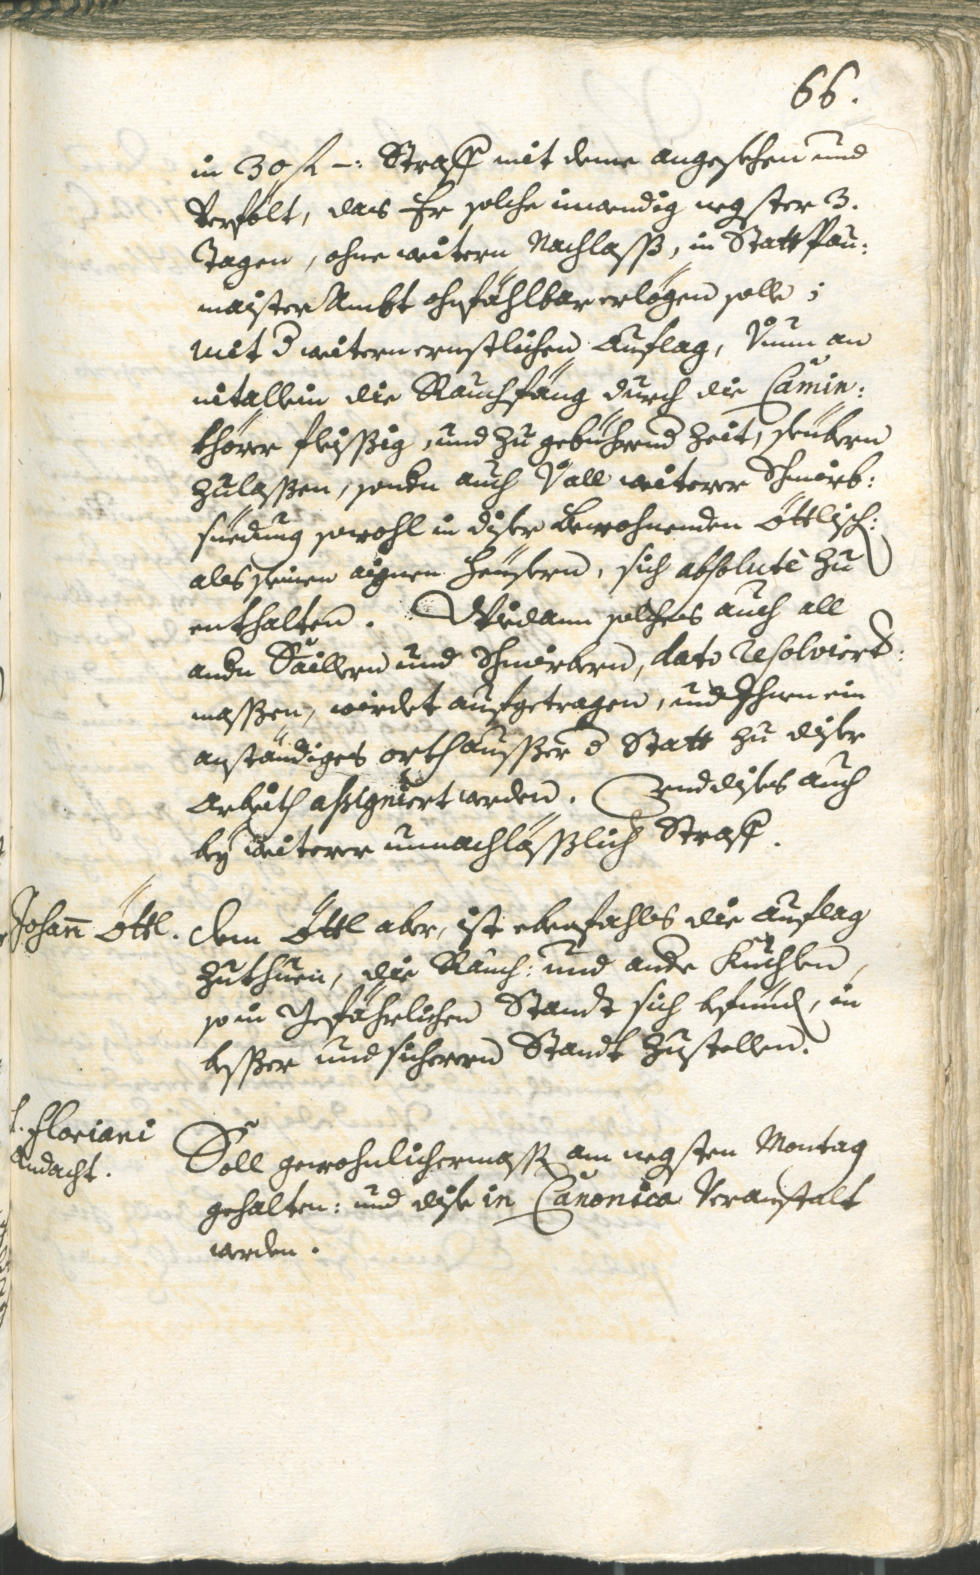 66.
in 30 fl –: Straff mit deme angesehen und
Verfölt, das Er solche inwendig negster 3.
Tagen, ohne weitern Nachlaß, in StattPau:
maister Ambt ohnfählbar erlögen solle;
mit d weitern ernstlichen Auflag, Vnun an
nit allein die Rauchfäng durch die Camin:
khörer fleissig, und zu gebührend Zeit, seübern
zulassen, sondn auch Vall weiterer Schmirb:
siedung sowohl in diser bewohnenden Öttlisch:
als seinen aignen Heüsern, sich absolutè zu
enthalten. Wie dann solches auch all
andn Saillern und Schmirbern, dato resolvierd:
massen, wirdet aufgetragen, und Ihnen ein
anständiges orth ausser d Statt zu diser
Arbeith assigniert werden. Und dises auch
bey weiterer unnachläßlich Straff.
Johan̄ Öttl.
dem Öttl aber, ist ebenfahls die Auflag
zuthuen, die Rauch: und andr Kuchlen,
so in Gefährlichen Standt sich befind, in
besser und sichern Standt zustellen.
S. Floriani
Andacht.
Soll gewohnlichermass am negsten Montag
gehalten: und dise in Canonica Veranstalt
werden.